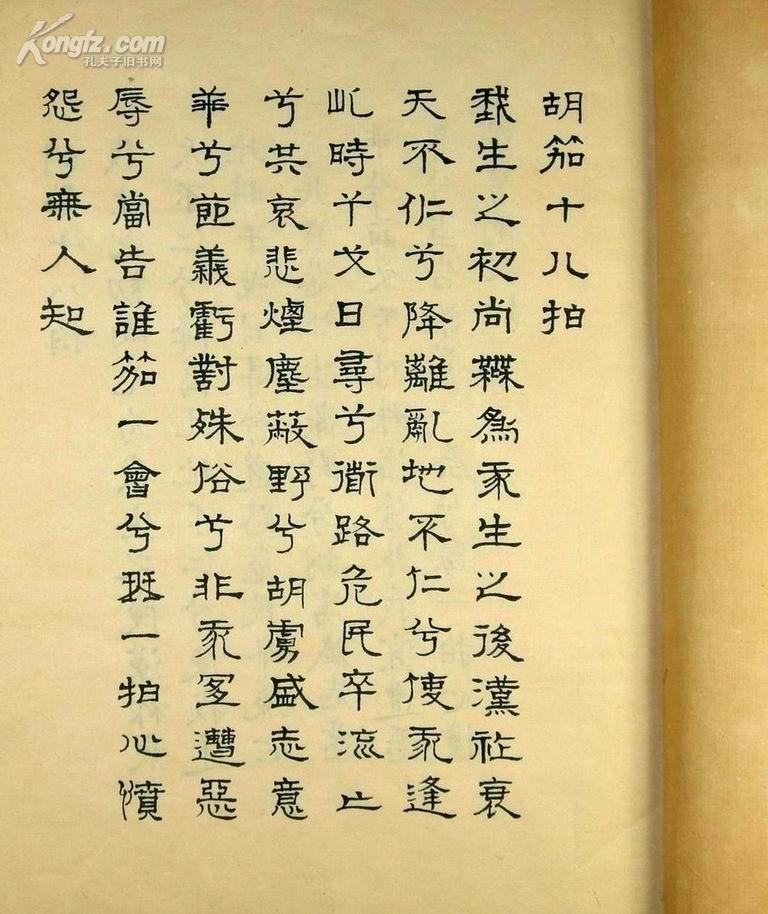 胡笳十八拍
我生之初尚無為我生之後漢祚衰
天不仁兮降離亂地不仁兮使我逢
此時干戈日尋兮衜路危民卒流亡
兮共哀悲煙塵蔽野兮胡虜盛志意
乖兮節義虧對殊俗兮非我宜遭惡
辱兮當告誰笳一會兮琴一拍心憤
怨兮無人知
Kongfz.com
孔夫子旧书网